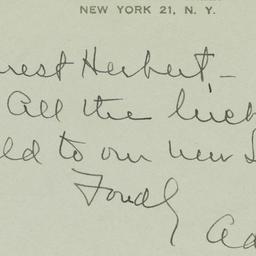 NEW YORK 21, N. Y.
rest Herbert, –
All the luck
ld to our new S
Fondly
Ad